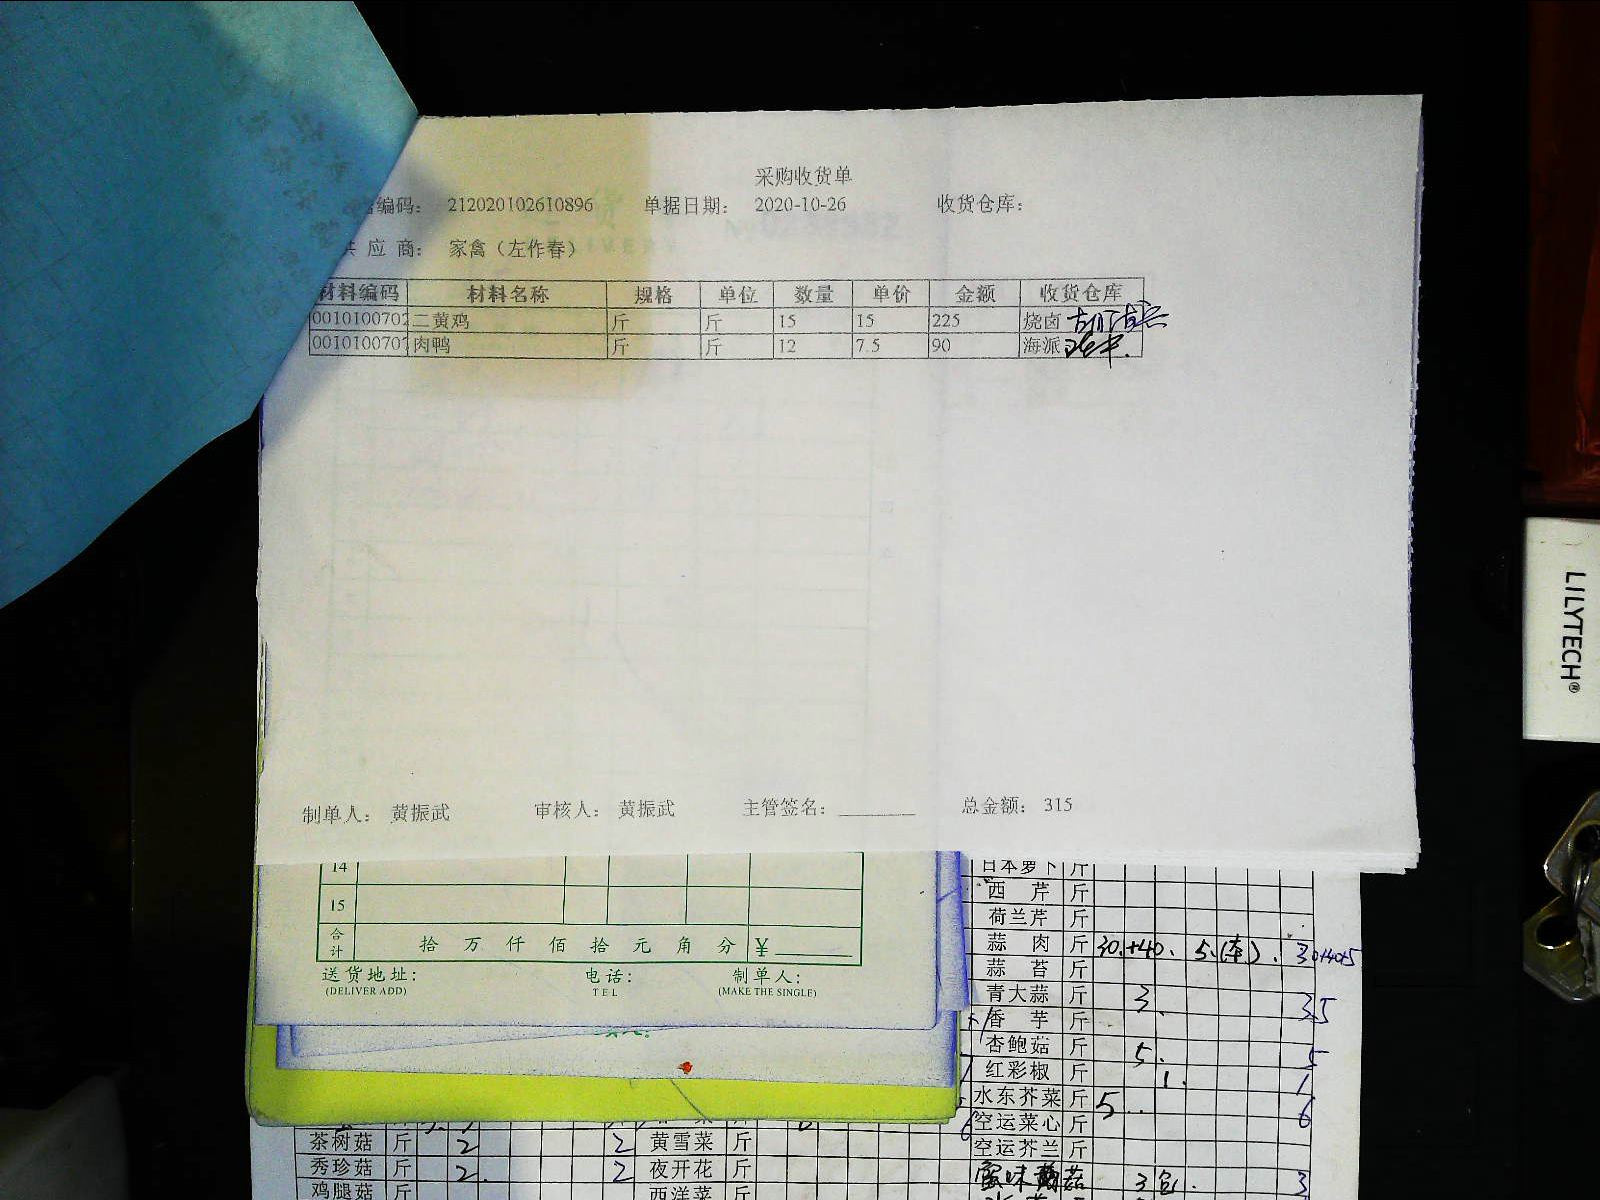 采购收货单
编码： 212020102610896 单据日期： 2020-10-26 收货仓库：
供 应 商： 家禽（左作春）
材料编码 材料名称 规格 单位 数量 单价 金额 收货仓库
0010100702 二黄鸡 斤 斤 15 15 225 烧卤
0010100707 肉鸭 斤 斤 12 7.5 90 海派
制单人： 黄振武 审核人： 黄振武 主管签名： 总金额： 315
14
15
合计 拾 万 仟 佰 拾 元 角 分 ¥
送货地址： 电话： 制单人：
(DELIVER ADD) TEL (MAKE THE SINGLE)
日本萝卜 斤
西 芹 斤
荷兰芹 斤
蒜 肉 斤 30.+40. 5.(本). 30+40+5
蒜 苔 斤
青大蒜 斤 3. 35
香 芋 斤
杏鲍菇 斤 5. 5
红彩椒 斤 1. 1
水东芥菜 斤 5.. 6
空运菜心 斤
空运芥兰 斤
3包. 3
茶树菇 斤 2 2 黄雪菜 斤
秀珍菇 斤 2. 2 夜开花 斤
鸡腿菇 斤 西洋菜 斤
LILYTECH®